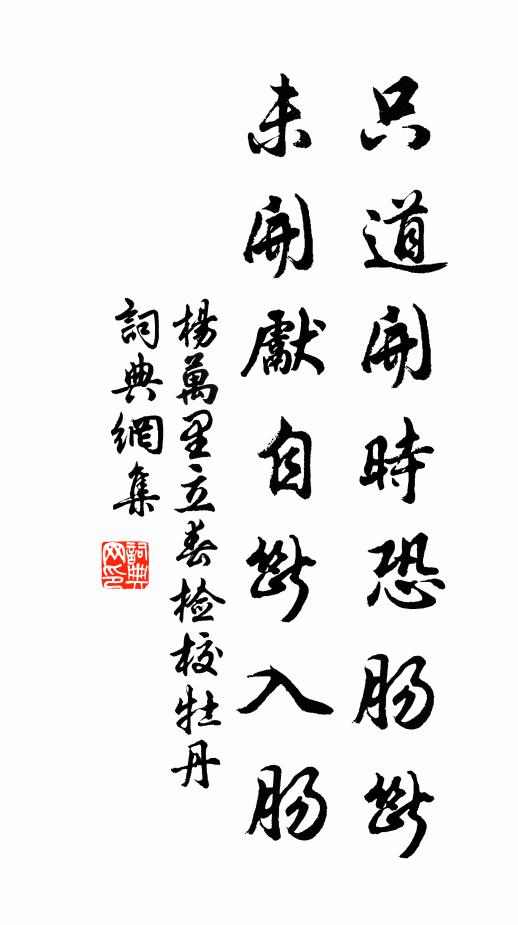 只道開時恐腸斷
未開獻自斷入腸
楊萬里立春检校牡丹
詞典網集
詞典
网印